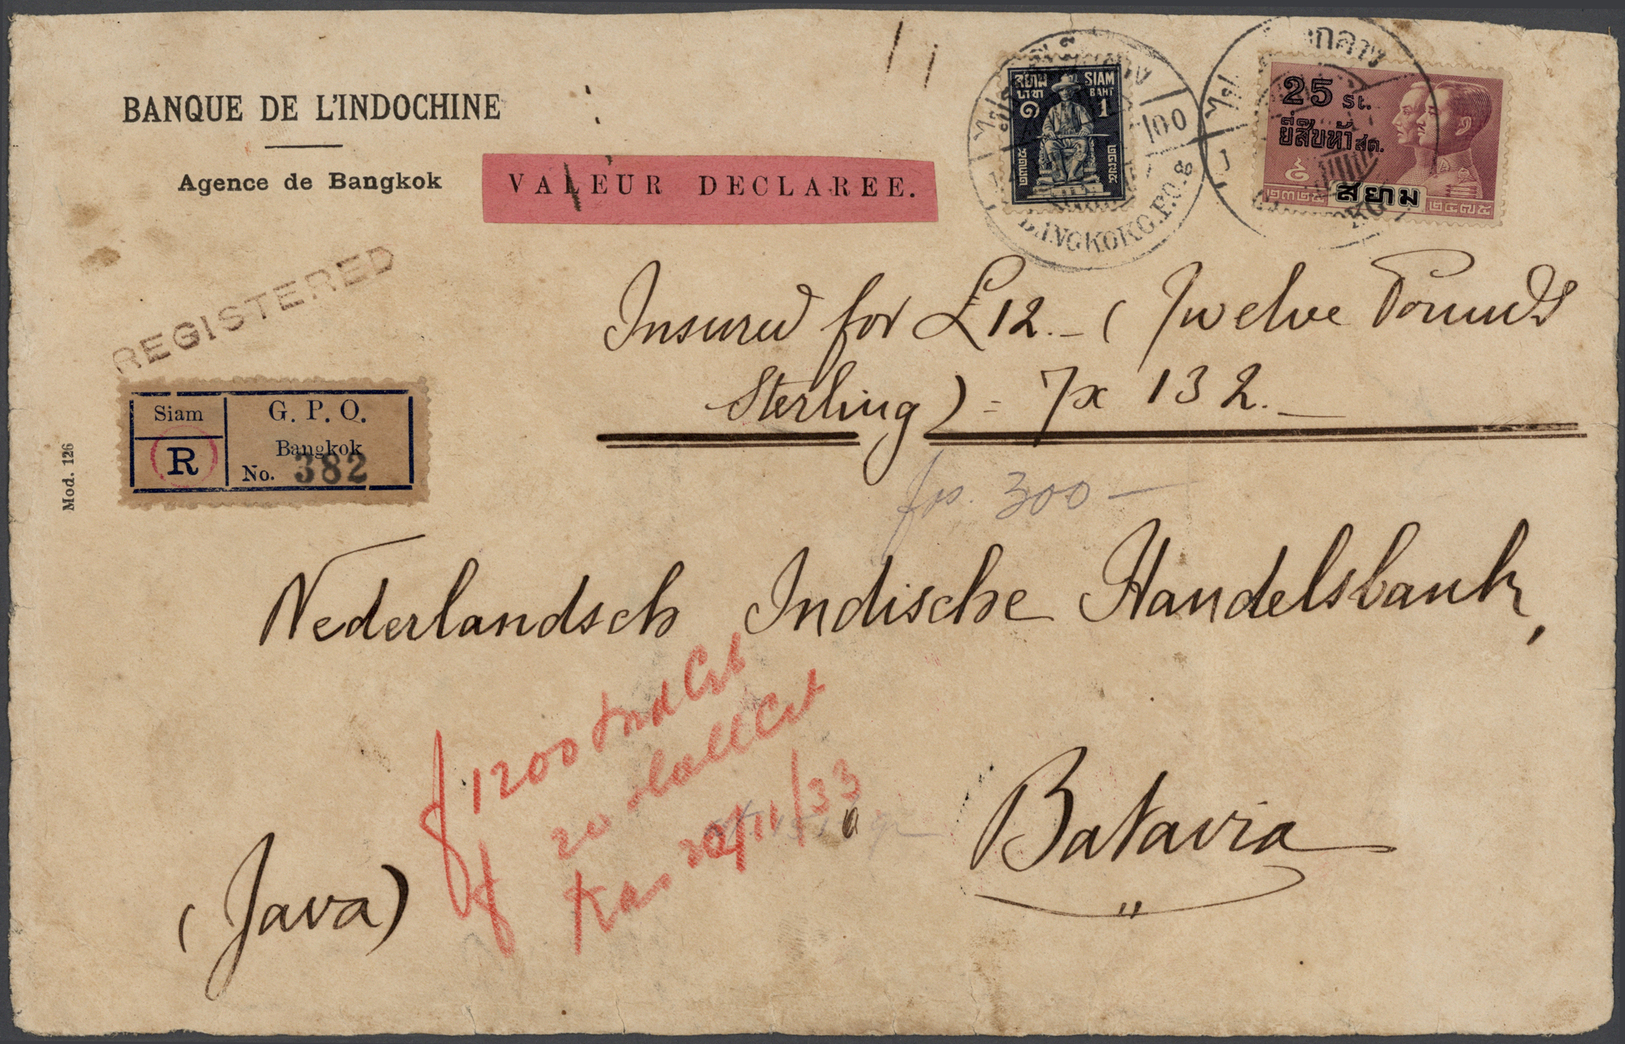 BANQUE DE L'INDOCHINE
Agence de Bangkok
VALEUR DECLAREE.
REGISTERED
สยาม
บาท
๑
SIAM
BAHT
1
BANGKOK G.P.O. 8
25 St.
ยี่สิบห้า สต.
สยาม
๒๓๒๕
๒๔๗๕
Insured for £12.- (Twelve Pounds
Sterling) = 7x 132.-
frs. 300-
Siam
R
G. P. O.
Bangkok
No. 382
Mod. 126
Nederlandsch Indische Handelsbank,
f 1200
20
20/11/33
Batavia
(Java)